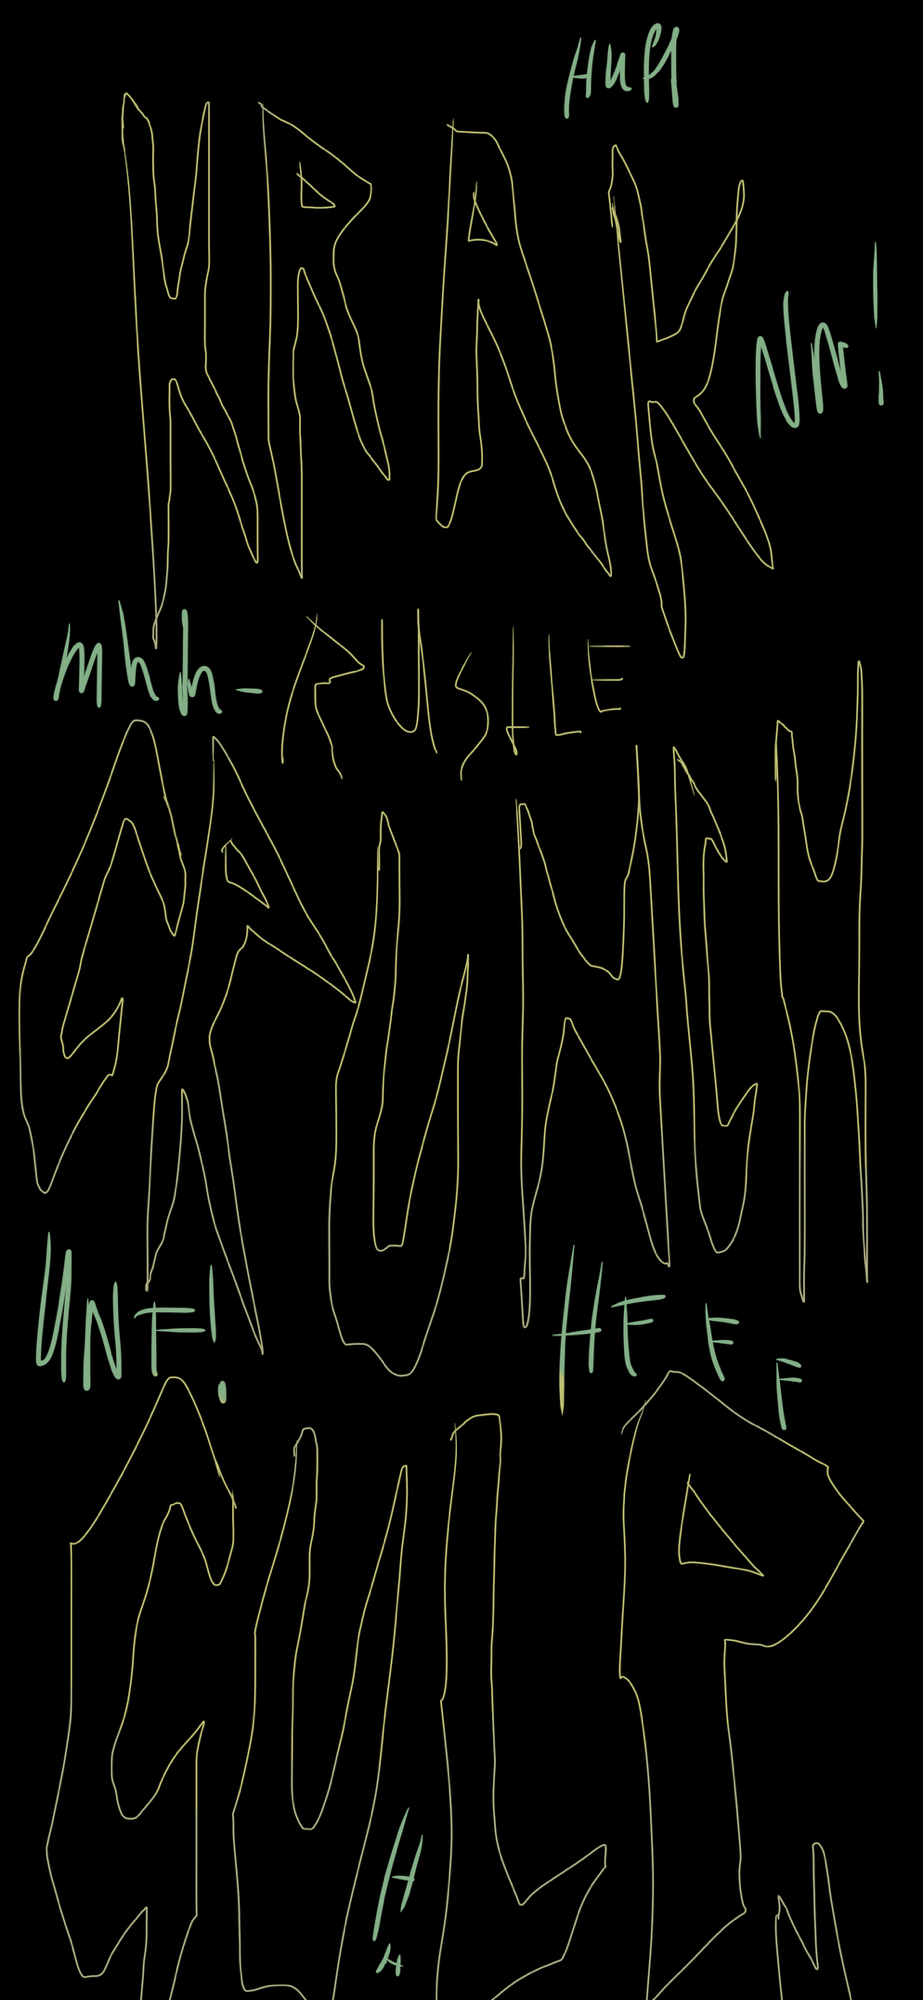 Huff
KRAK
Nn!
mhh-
RUSTLE
GRUNCH
UNF!
HFEF
GULP
H